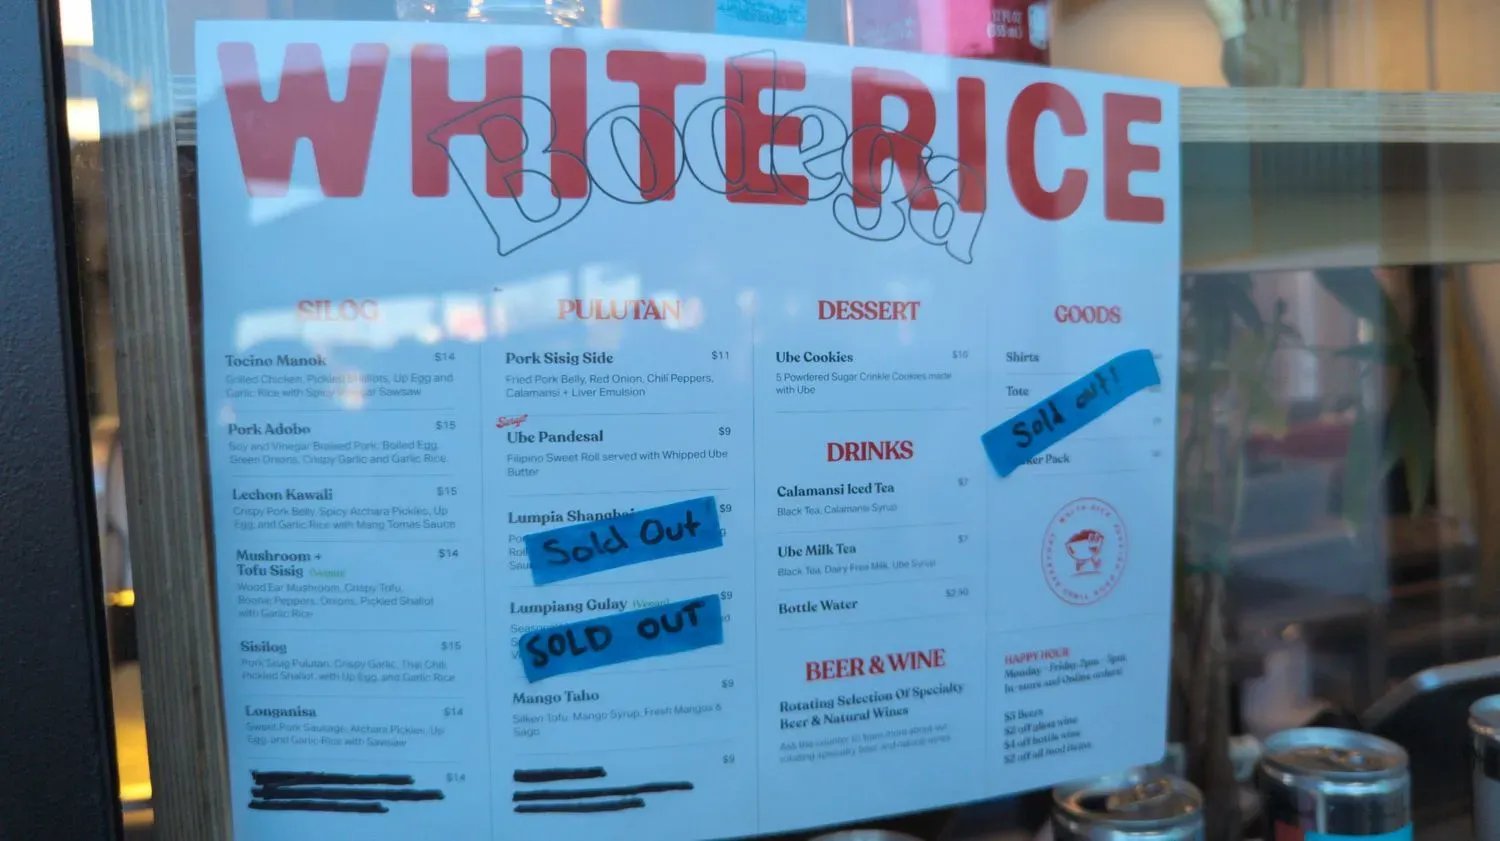 WHITE RICE
Bodega
SILOG
Tocino Manok $14
Grilled Chicken, Pickled Shallots, Up Egg and
Garlic Rice with Spicy Vinegar Sawsaw
Pork Adobo $15
Soy and Vinegar Braised Pork, Boiled Egg,
Green Onions, Crispy Garlic and Garlic Rice
Lechon Kawali $15
Crispy Pork Belly, Spicy Atchara Pickles, Up
Egg, and Garlic Rice with Mang Tomas Sauce
Mushroom + $14
Tofu Sisig (Vegan)
Wood Ear Mushroom, Crispy Tofu,
Peppers, Onions, Pickled Shallot
with Garlic Rice
Sisilog $15
Pork Sisig Pulutan, Crispy Garlic, Thai Chili,
Pickled Shallot, with Up Egg, and Garlic Rice
Longanisa $14
Sweet Pork Sausage, Atchara Pickles, Up
Egg, and Garlic Rice with Sawsaw
$14
PULUTAN
Pork Sisig Side $11
Fried Pork Belly, Red Onion, Chili Peppers,
Calamansi + Liver Emulsion
Ube Pandesal $9
Filipino Sweet Roll served with Whipped Ube
Butter
Lumpia Shanghai $9
Sold Out
Lumpiang Gulay (Vegan) $9
SOLD OUT
Mango Taho $9
Silken Tofu, Mango Syrup, Fresh Mangos &
Sago
$9
DESSERT
Ube Cookies $16
5 Powdered Sugar Crinkle Cookies made
with Ube
DRINKS
Calamansi Iced Tea $7
Black Tea, Calamansi Syrup
Ube Milk Tea $7
Black Tea, Dairy Free Milk, Ube Syrup
Bottle Water $2.50
BEER & WINE
Rotating Selection Of Specialty
Beer & Natural Wines
Ask the counter to learn more about our
rotating specialty beer and natural wines
GOODS
Shirts
Tote
Sold out!
ker Pack
HAPPY HOUR
Monday - Friday 2pm - 5pm
In-store and Online orders!
$5 Beers
$2 off glass wine
$4 off bottle wine
$2 off all food items